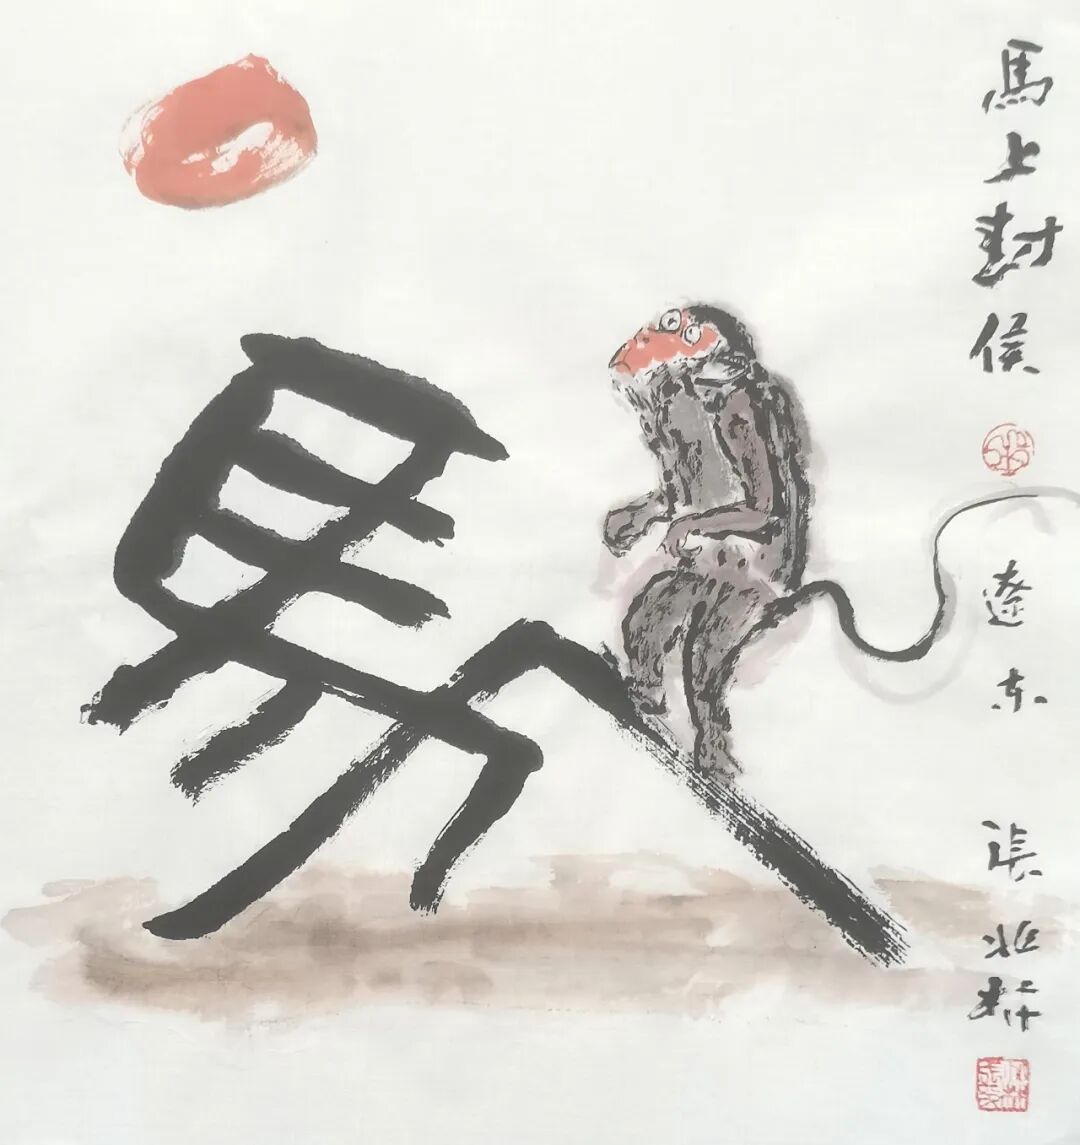 馬
馬上封侯
遼东 張